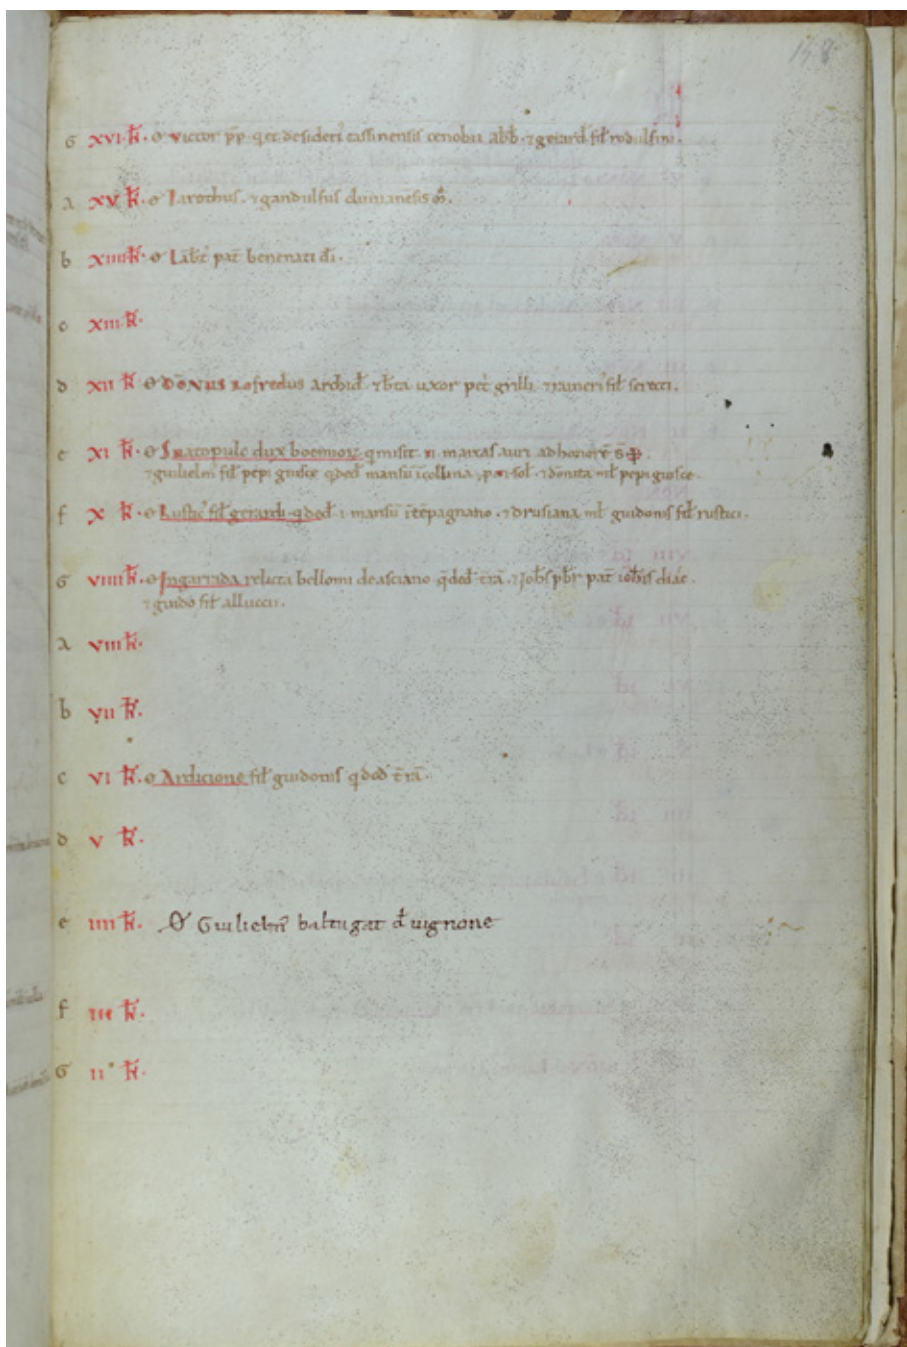 148
G XVI·k̅l· O Victor p̅p̅ q̄ et desideri' cassinensis cenobii abb̅· ⁊ gerard̅ fil̅ rodulfini·
a XV k̅l· O Iarothus· ⁊ gandulfus
b XIIII k̅l· O Lāb̅t' pat̅ benenati
c XIII·k̅l·
d XII k̅l O DŌNUS Rofredus archid̅· ⁊ b̅ta uxor pet̅ grilli ⁊ raineri' fil̅ seracci·
e XI k̅l· O Sratopulc dux boemiorꝫ q̄ misit VI marxas auri ad honorē S̅·P̅
⁊ guilielm' fil̅ pepi giusce q̄ ded̅ mansū ī collina ⁊ donita ml̅ pepi giusce·
f X k̅l· O Rustic' fil̅ gerardi q̄ ded̅ I mansū ī tēpagnano· ⁊ drusiana ml̅ guidonis fil̅ rustici·
G VIIII k̅l· O Ingarrada relicta bellomi de asciano q̄ ded̅ t̅rā· ⁊ Ioh̅s p̅b̅r pat̅ ioh̅is diac̅·
⁊ guido fil̅ alluccii·
a VIII k̅l·
b VII k̅l·
c VI k̅l· O Ardicione fil̅ guidonis q̄ ded̅ t̅rā·
d V k̅l·
e IIII k̅l· O Guilielm' baltugat d̅ uignone
f III k̅l·
G II° k̅l·